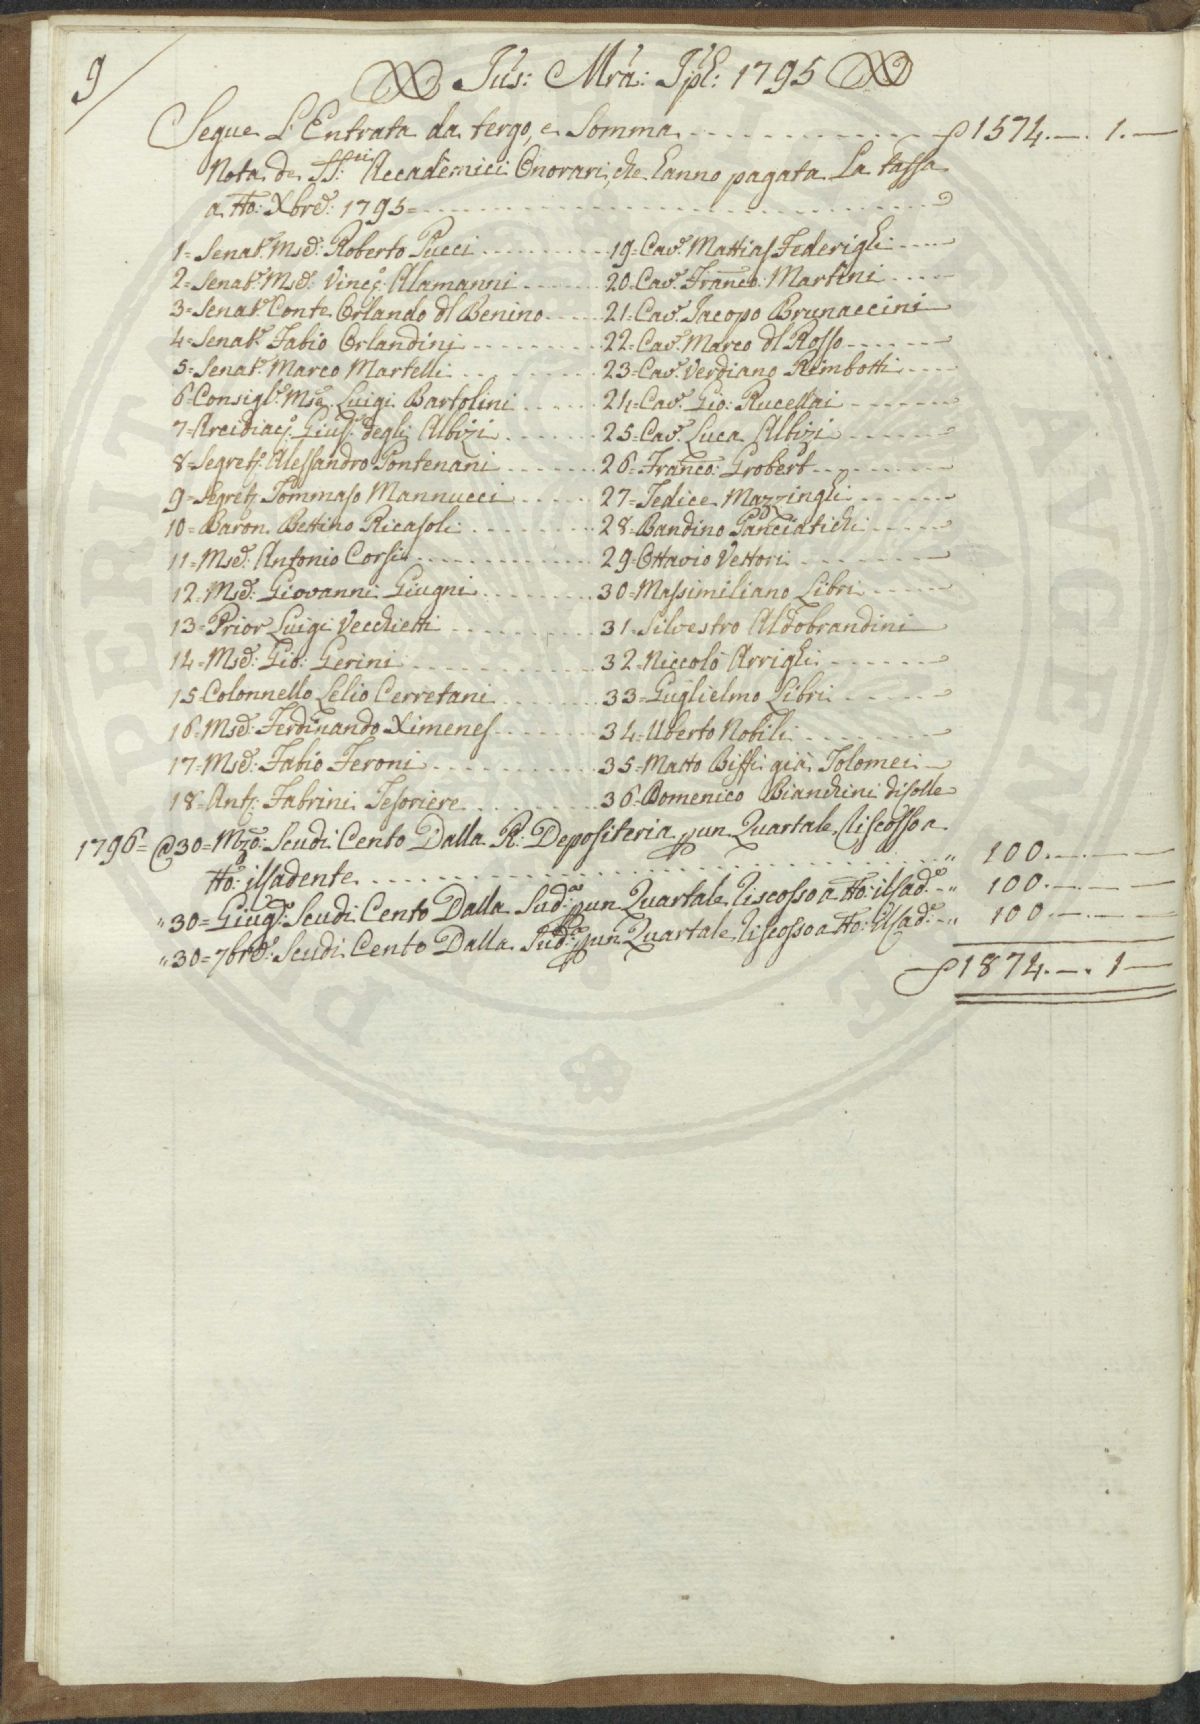 9
Jus: Mra: Jpl: 1795
Segue L'Entrata da tergo, e Somma 1574.—. 1.—
Nota de SS:ri Accademici Onorari, che hanno pagata La tassa
a tto: Xbre: 1795=
1= Senat.e Mse: Roberto Pucci
2= Senat.e Mse: Vinc: Alamanni
3= Senat.e Conte Orlando dl Benino
4= Senat.e Fabio Orlandini
5= Senat.e Marco Martelli
6= Consigl.e Mse Luigi Bartolini
7= Arcidiac: Gius: degli Albizi
8= Segret: Alessandro Pontenani
9= Segret: Tommaso Mannucci
10= Baron Bettino Ricasoli
11= Mse: Antonio Corsi
12= Mse: Giovanni Giugni
13= Prior Luigi Vecchietti
14= Mse: Gio: Gerini
15= Colonnello Lelio Cerretani
16= Mse: Ferdinando Ximenes
17= Mse: Fabio Feroni
18= Ant: Fabrini Tesoriere
19= Cav.e Mattias Federighi
20= Cav.e Franco: Martini
21= Cav.e Jacopo Brunaccini
22= Cav.e Marco dl Rosso
23= Cav.e Verdiano Rimbotti
24= Cav.e Gio: Rucellai
25= Cav.e Luca Albizi
26= Franco: Grobert
27= Tedice Mazzinghi
28= Bandino Panciatichi
29= Ottavio Vettori
30= Massimiliano Libri
31= Silvestro Aldobrandini
32= Niccolò Arrighi
33= Guglielmo Libri
34= Uberto Nobili
35= Matto Biffi già Tolomei
36= Domenico Bianchini
1796= @ 30= Mzo: Scudi Cento Dalla R: Depositeria p un Quartale Riscosso a
tto: il sadente " 100.—.—
" 30= Giug: Scudi Cento Dalla Sud:a p un Quartale Riscosso a tto: il sad:e " 100.—.—
" 30= 7bre: Scudi Cento Dalla Sud:a p un Quartale Riscosso a tto: il sad:e " 100.—.—
1874.—. 1—